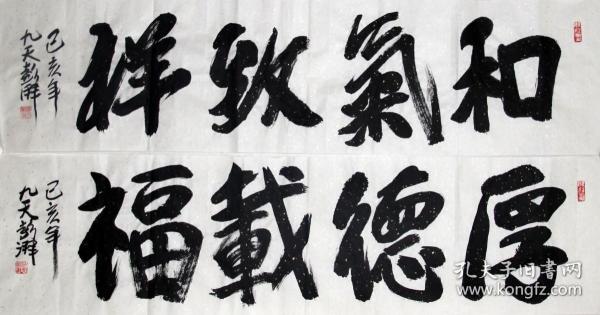 和氣致祥
己亥年
九天彭湃
厚德載福
己亥年
九天彭湃
孔夫子旧书网
www.kongfz.com